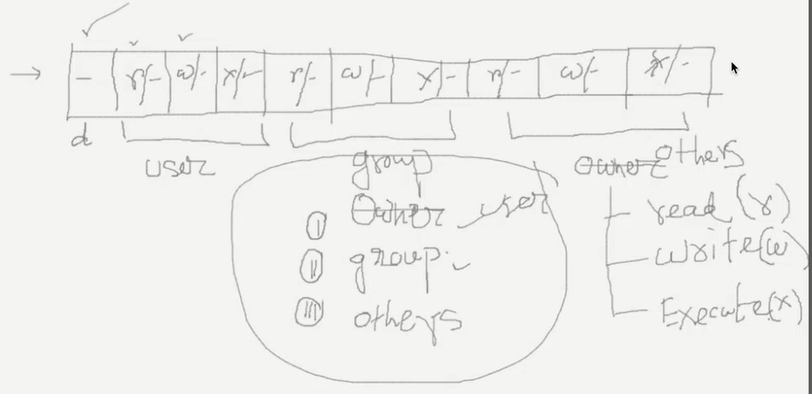 - r/- w/- x/- r/- w/- x/- r/- w/- x/-
d
user group owner others
I owner user
II group
III others
read (r)
write(w)
Execute(x)